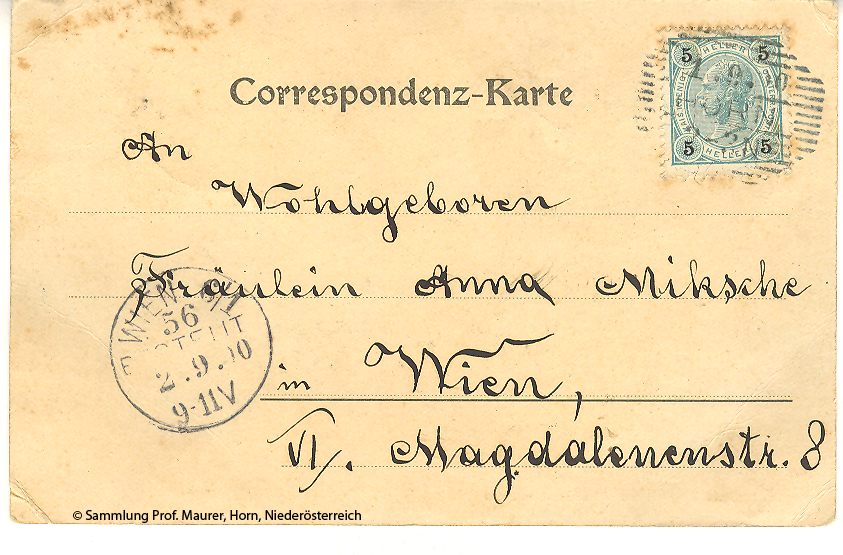 5 HELLER 5
5 HELLER 5
Correspondenz-Karte
An
Wohlgeboren
Fräulein Anna Miksche
WIEN 6/1
56
BESTELLT
2.9.00
9-11V
in Wien,
VI/. Magdalenenstr. 8
© Sammlung Prof. Maurer, Horn, Niederösterreich